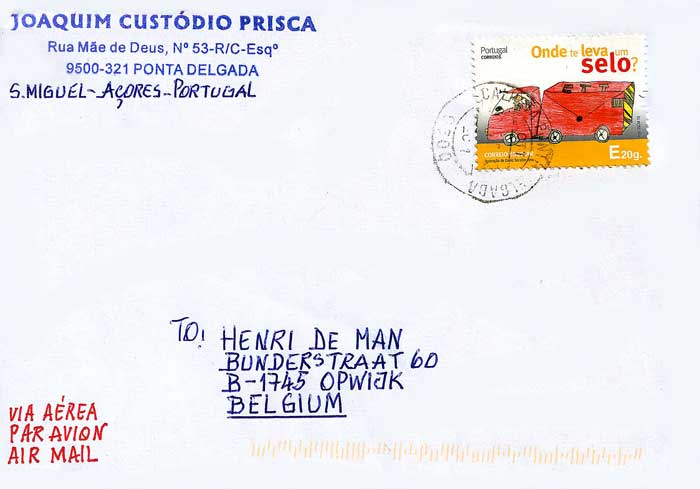 JOAQUIM CUSTÓDIO PRISCA
Rua Mãe de Deus, Nº 53-R/C-Esqº
9500-321 PONTA DELGADA
S. MIGUEL-AÇORES-PORTUGAL
Portugal
CORREIOS
Onde te leva um
selo?
CORREIO
E20g.
DELGADA
TO:
HENRI DE MAN
BUNDERSTRAAT 60
B-1745 OPWIJK
BELGIUM
VIA AÉREA
PAR AVION
AIR MAIL